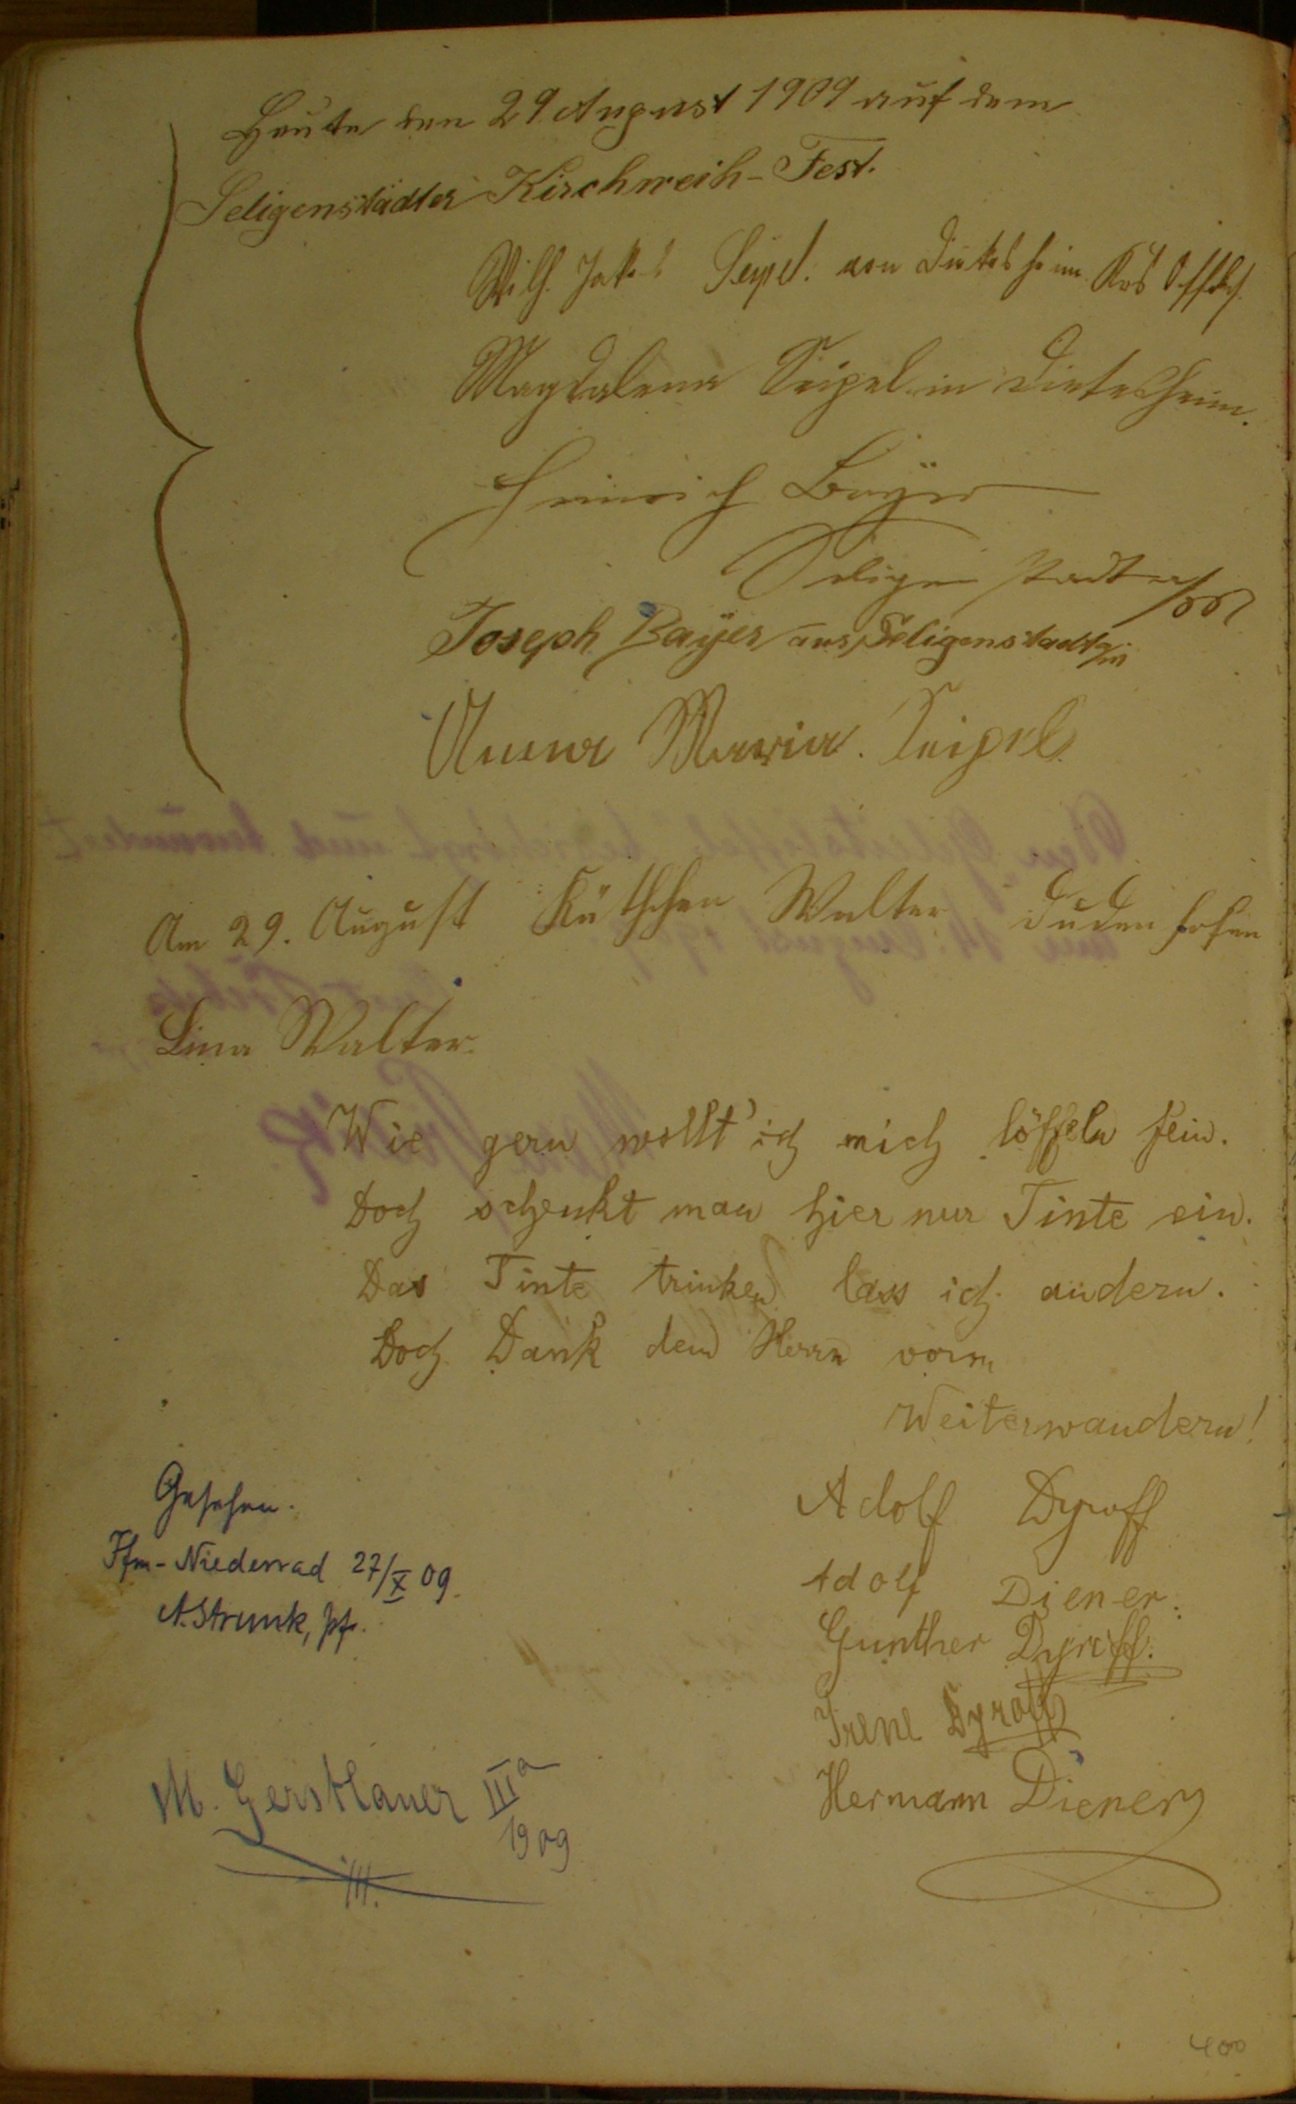 Heute den 29 August 1909 auf dem
Seligenstädter Kirchweih-Fest.
Wilh. Jakob Seipel. von Dietesheim Krs Offbch.
Magdalena Seipel in Dietesheim.
Heinrich Bayer
Seligenstadt a/
Joseph Bayer aus Seligenstadt
Anna Maria. Seipel.
Am 29. August Käthchen Walter Dudenhofen
Lina Walter.
Wie gern wollt' ich mich löffeln fein.
Doch schenkt man hier nur Tinte ein.
Das Tinte trinken lass ich andern.
Doch Dank dem Herrn vorm
Weiterwandern!
Gesehen.
Ffm-Niederrad 27/X 09.
A. Strunk, Pfr.
Adolf Dyroff
Adolf Diener.
Gunther Dyroff.
Irene Dyroff
Hermann Diener
M. Gerstlauer IIIa
1909
400